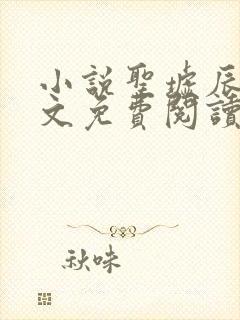 小說聖墟辰
文免費閱讀
秋味